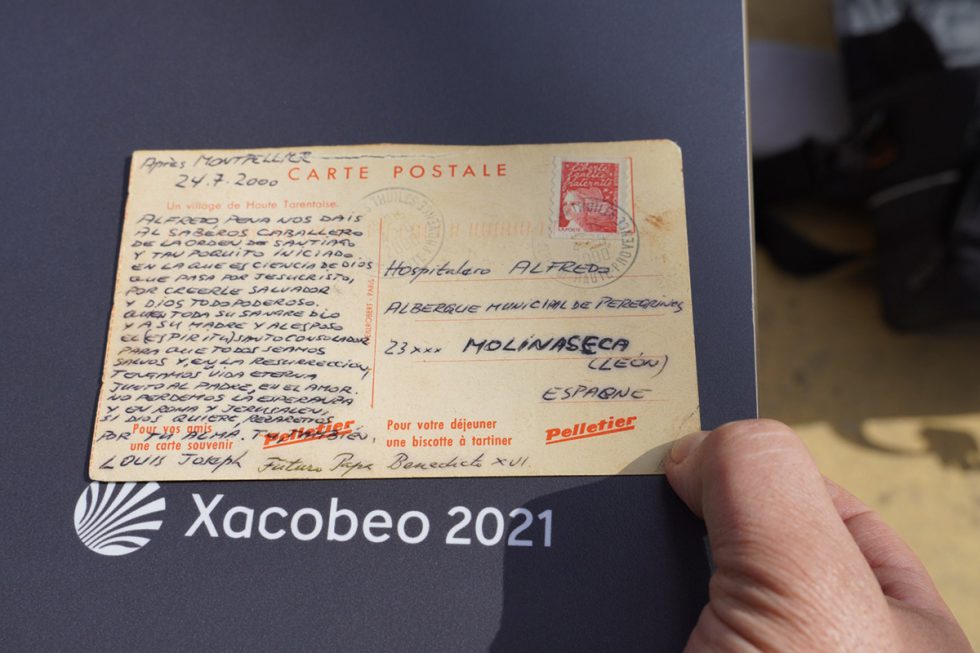 Après MONTPELLIER
24.7.2000
CARTE POSTALE
Un village de Haute Tarentaise.
ALFREDO PENA NOS DAIS
AL SABEROS CABALLERO
DE LA ORDEN DE SANTIAGO
Y TAN POQUITO INICIADO
EN LA QUE ES CIENCIA DE DIOS
QUE PASA POR JESUCRISTO,
POR CREERLE SALVADOR
Y DIOS TODOPODEROSO.
QUIEN TODA SU SANGRE DIO
Y A SU MADRE Y AL ESPOSO
EL (ESPIRITU) SANTO CONSOLADOR
PARA QUE TODOS SEAMOS
SALVOS Y, EN LA RESURRECCION,
TENGAMOS VIDA ETERNA
JUNTO AL PADRE, EN EL AMOR.
NO PERDEMOS LA ESPERANZA
Y EN ROMA Y JERUSALEN,
SI DIOS QUIERE REZAREMOS
POR TU ALMA.
LOUIS Joseph Futuro Papa Benedicto XVI.
Pour vos amis
une carte souvenir
Pelletier
Liberté
Egalité
Fraternité
LA POSTE
Hospitalero ALFREDO
ALBERGUE MUNICIPAL DE PEREGRINOS
23xxx MOLINASECA
(LEÓN)
ESPAGNE
Pour votre déjeuner
une biscotte à tartiner
Pelletier
Xacobeo 2021